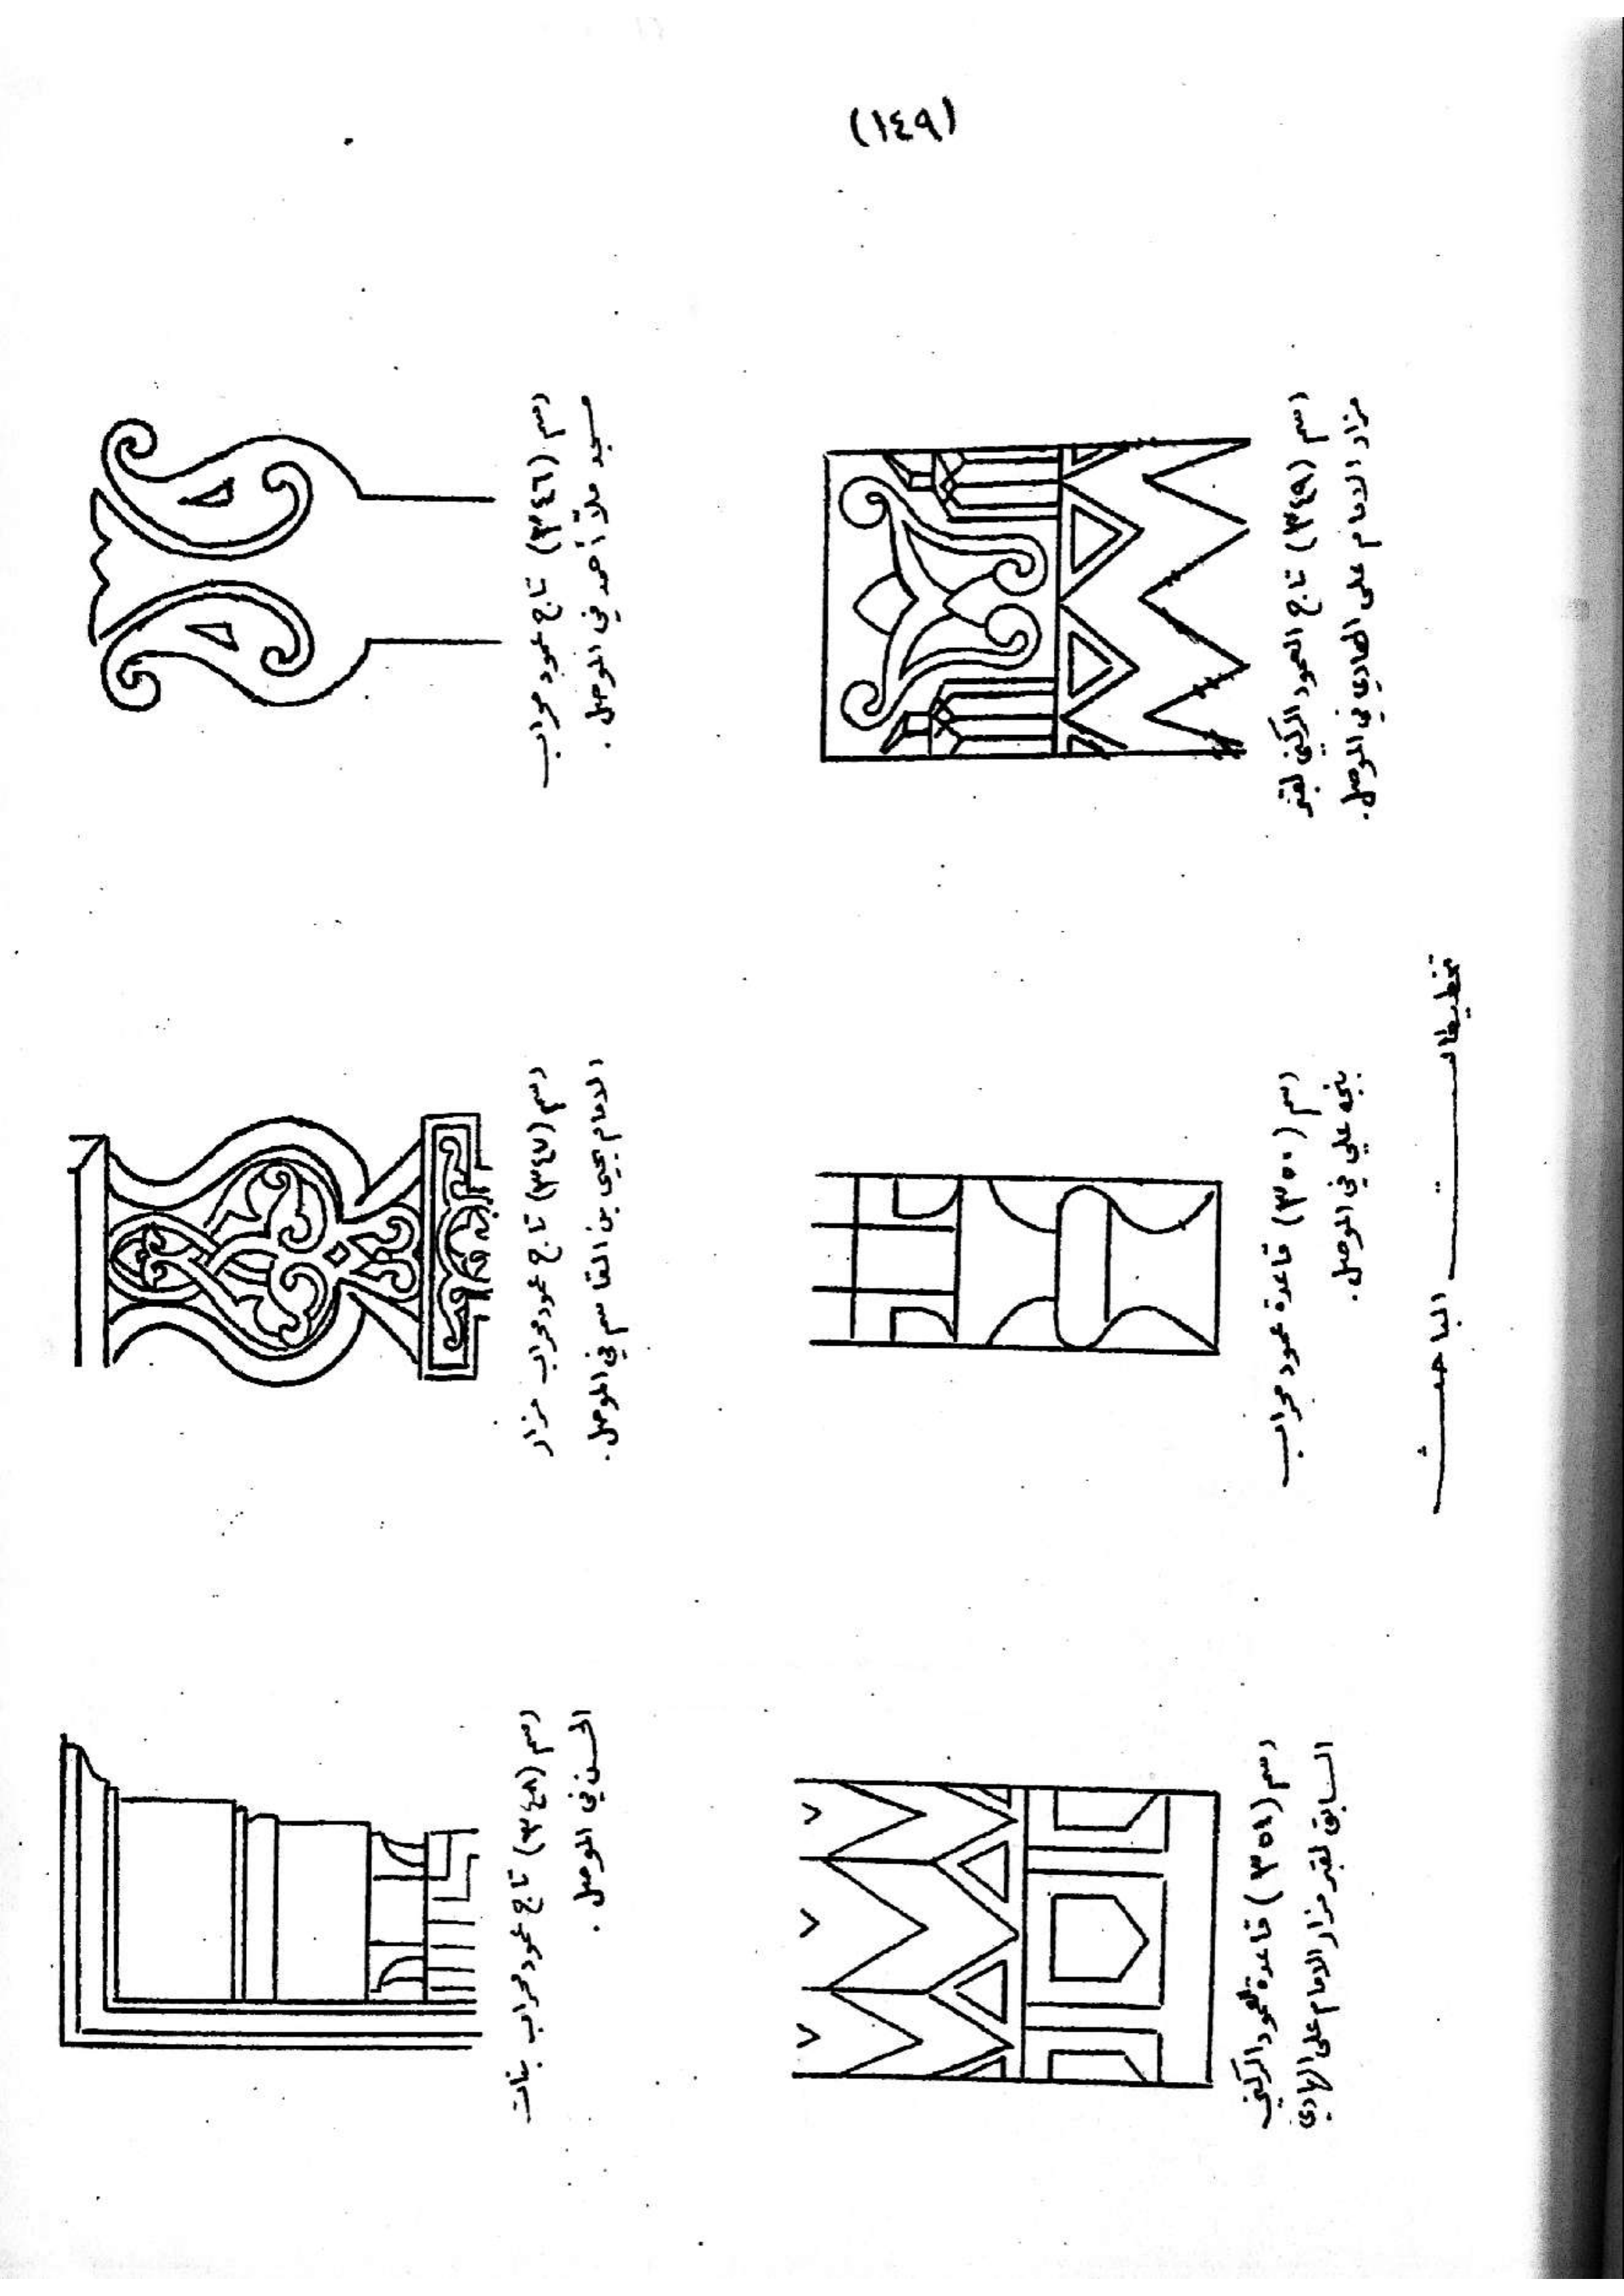 (١٤٩)
رسم (٣٤٦) تاج عمود محراب
مسجد ملا أحمد في الموصل .
رسم (٣٤٧) تاج عمود محراب مزار
الامام يحيى بن القاسم في الموصل .
رسم (٣٤٨) تاج عمود محراب بنات
الحسن في الموصل .
رسم (٣٤٩) تاج العمود الركني لقبر
مزار الامام علي الهادي في الموصل.
رسم (٣٥٠) قاعدة عمود محراب
بنجه علي في الموصل.
رسم (٣٥١) قاعدة العمود الركني
السابق لقبر مزار الامام علي الهادي
تخطيطات الباحث